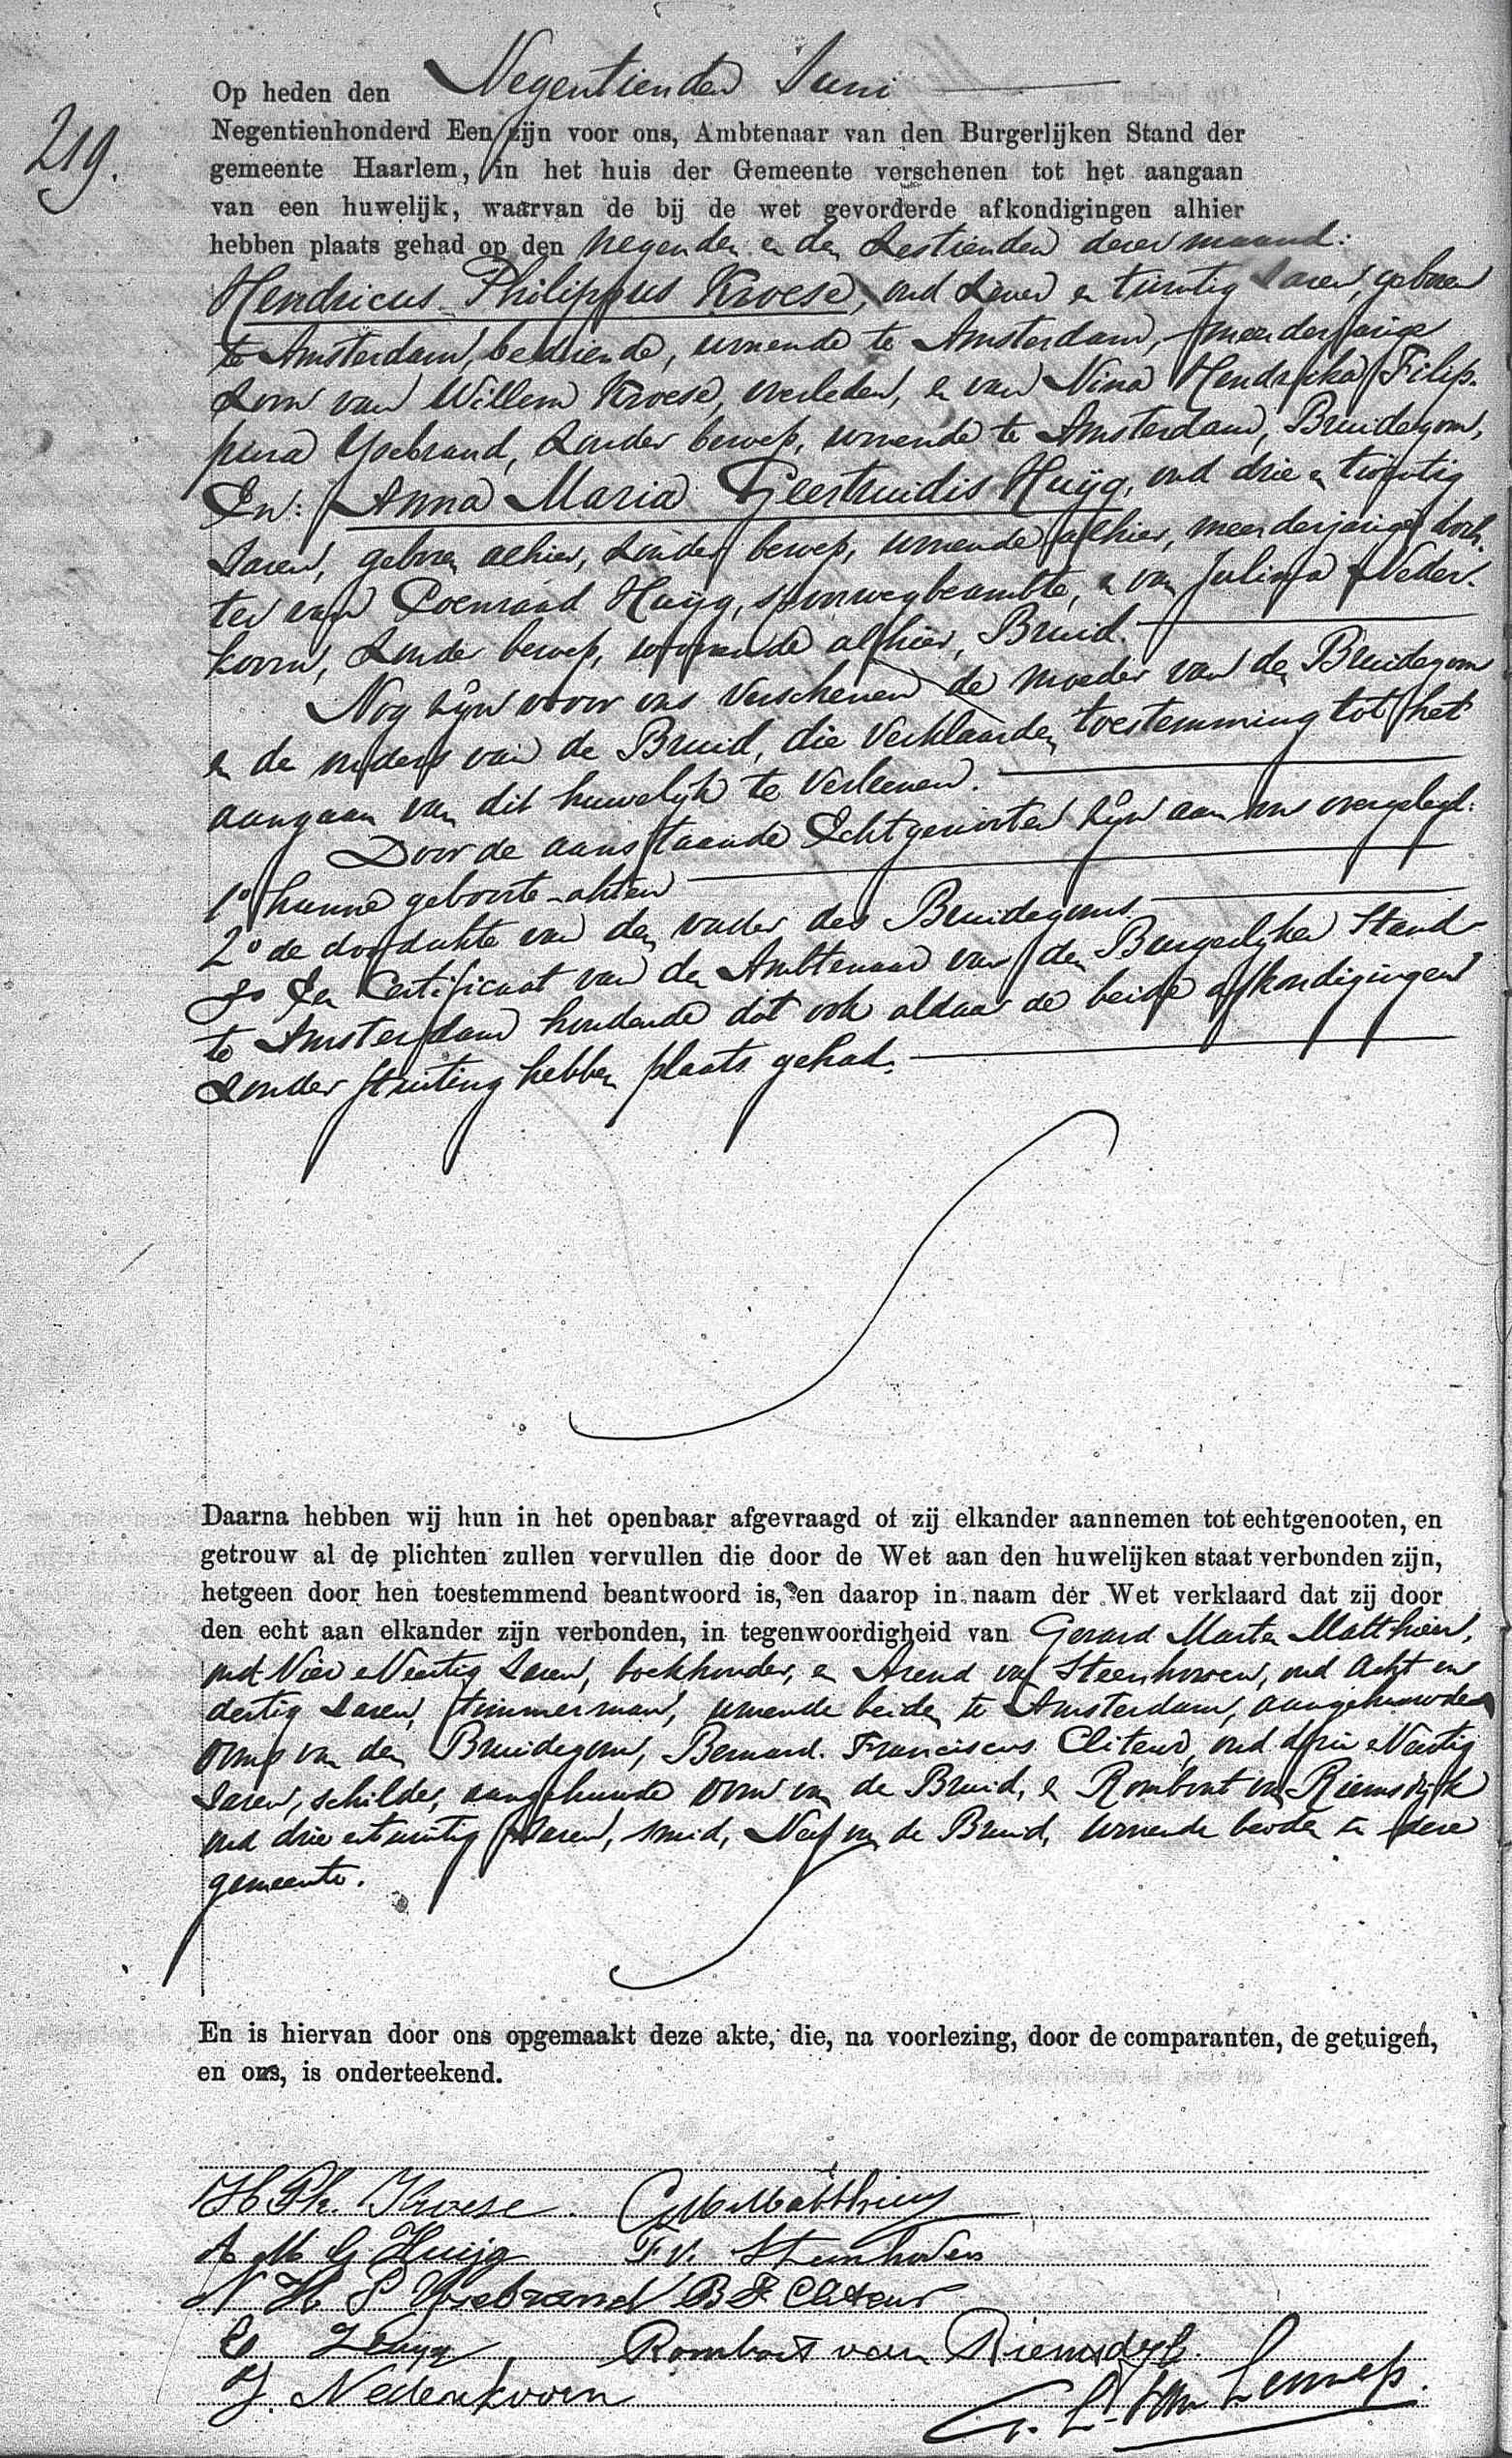 219.
Op heden den Negentienden Juni
Negentienhonderd Een zijn voor ons, Ambtenaar van den Burgerlijken Stand der
gemeente Haarlem, in het huis der Gemeente verschenen tot het aangaan
van een huwelijk, waarvan de bij de wet gevorderde afkondigingen alhier
hebben plaats gehad op den negenden en den Zestienden dezer maand:
Hendricus Philippus Kroese, oud Zeven en twintig Jaren, geboren
te Amsterdam, bediende, wonende te Amsterdam, meerderjarige
Zoon van Willem Kroese, overleden, en van Nina Hendrika Filip-
pina Ysebrand, Zonder beroep, wonende te Amsterdam, Bruidegom,
En: Anna Maria Geertruidis Huijg, oud drie en twintig
Jaren, geboren alhier, Zonder beroep, wonende alhier, meerderjarige doch-
ter van Coenraad Huijg, spoorwegbeambte, en van Julina Neder-
koorn, Zonder beroep, wonende alhier, Bruid.
Nog zijn voor ons verschenen de moeder van den Bruidegom
en de ouders van de Bruid, die verklaarden toestemming tot het
aangaan van dit huwelijk te verleenen.
Door de aanstaande Echtgenooten zijn aan ons overgelegd:
1o hunne geboorte-akten
2o de doodakte van den vader des Bruidegoms.
3o Een Certificaat van den Ambtenaar van den Burgerlijken Stand
te Amsterdam houdende dat ook aldaar de beide afkondigingen
Zonder stuiting hebben plaats gehad.
Daarna hebben wij hun in het openbaar afgevraagd of zij elkander aannemen tot echtgenooten, en
getrouw al de plichten zullen vervullen die door de Wet aan den huwelijken staat verbonden zijn,
hetgeen door hen toestemmend beantwoord is, en daarop in naam der Wet verklaard dat zij door
den echt aan elkander zijn verbonden, in tegenwoordigheid van Gerard Marten Matthieu,
oud Vier en Veertig Jaren, boekhouder, en Arend van Steenhoven, oud Acht en
dertig Jaren, timmerman, wonende beiden te Amsterdam, aangehuwde
ooms van den Bruidegom, Bernard Franciscus Cliteur, oud drie en Veertig
Jaren, schilder, aangehuwde oom van de Bruid, en Rombout van Riemsdijk
oud drie en twintig Jaren, smid, Neef van de Bruid, wonende beiden in deze
gemeente.
En is hiervan door ons opgemaakt deze akte, die, na voorlezing, door de comparanten, de getuigen,
en ons, is onderteekend.
H. Ph. Kroese. G M Matthieu
A M G Huijg v. Steenhoven
N H P Ysebrand B F Cliteur
C Huijg Rombout van Riemsdijk
J. Nederkoorn van Lennep.